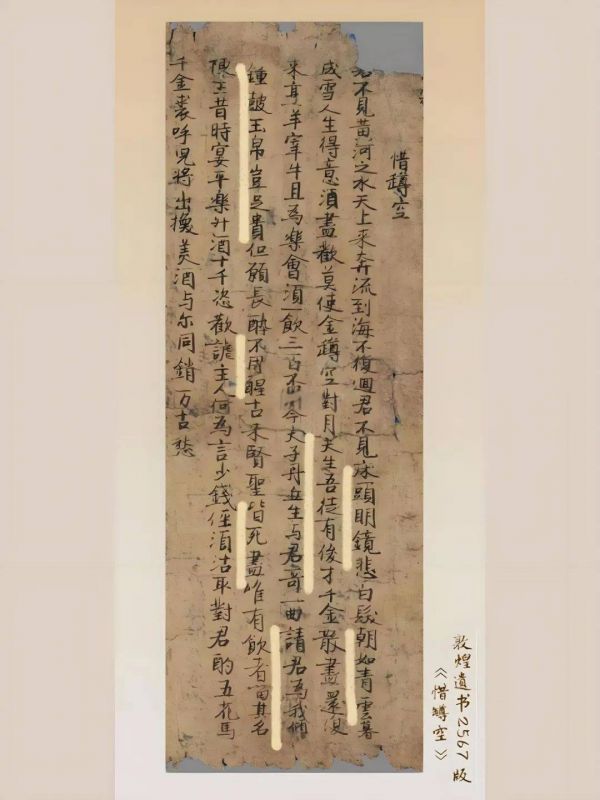 惜罇空
君不見黃河之水天上来奔流到海不復迴君不見床頭明鏡悲白髮朝如青雲暮
成雪人生得意須盡歡莫使金罇空對月天生吾徒有俊才千金散盡還復
来烹羊宰牛且為樂會須一飲三百盃岑夫子丹丘生与君哥一曲請君為我傾
鍾皷玉帛豈足貴但願長醉不用醒古来賢聖皆死盡唯有飲者留其名
陳王昔時宴平樂斗酒十千恣歡謔主人何為言少錢徑須沽取對君酌五花馬
千金裘呼兒將出換美酒与尔同銷万古愁
敦煌遺书2567版
《惜罇空》